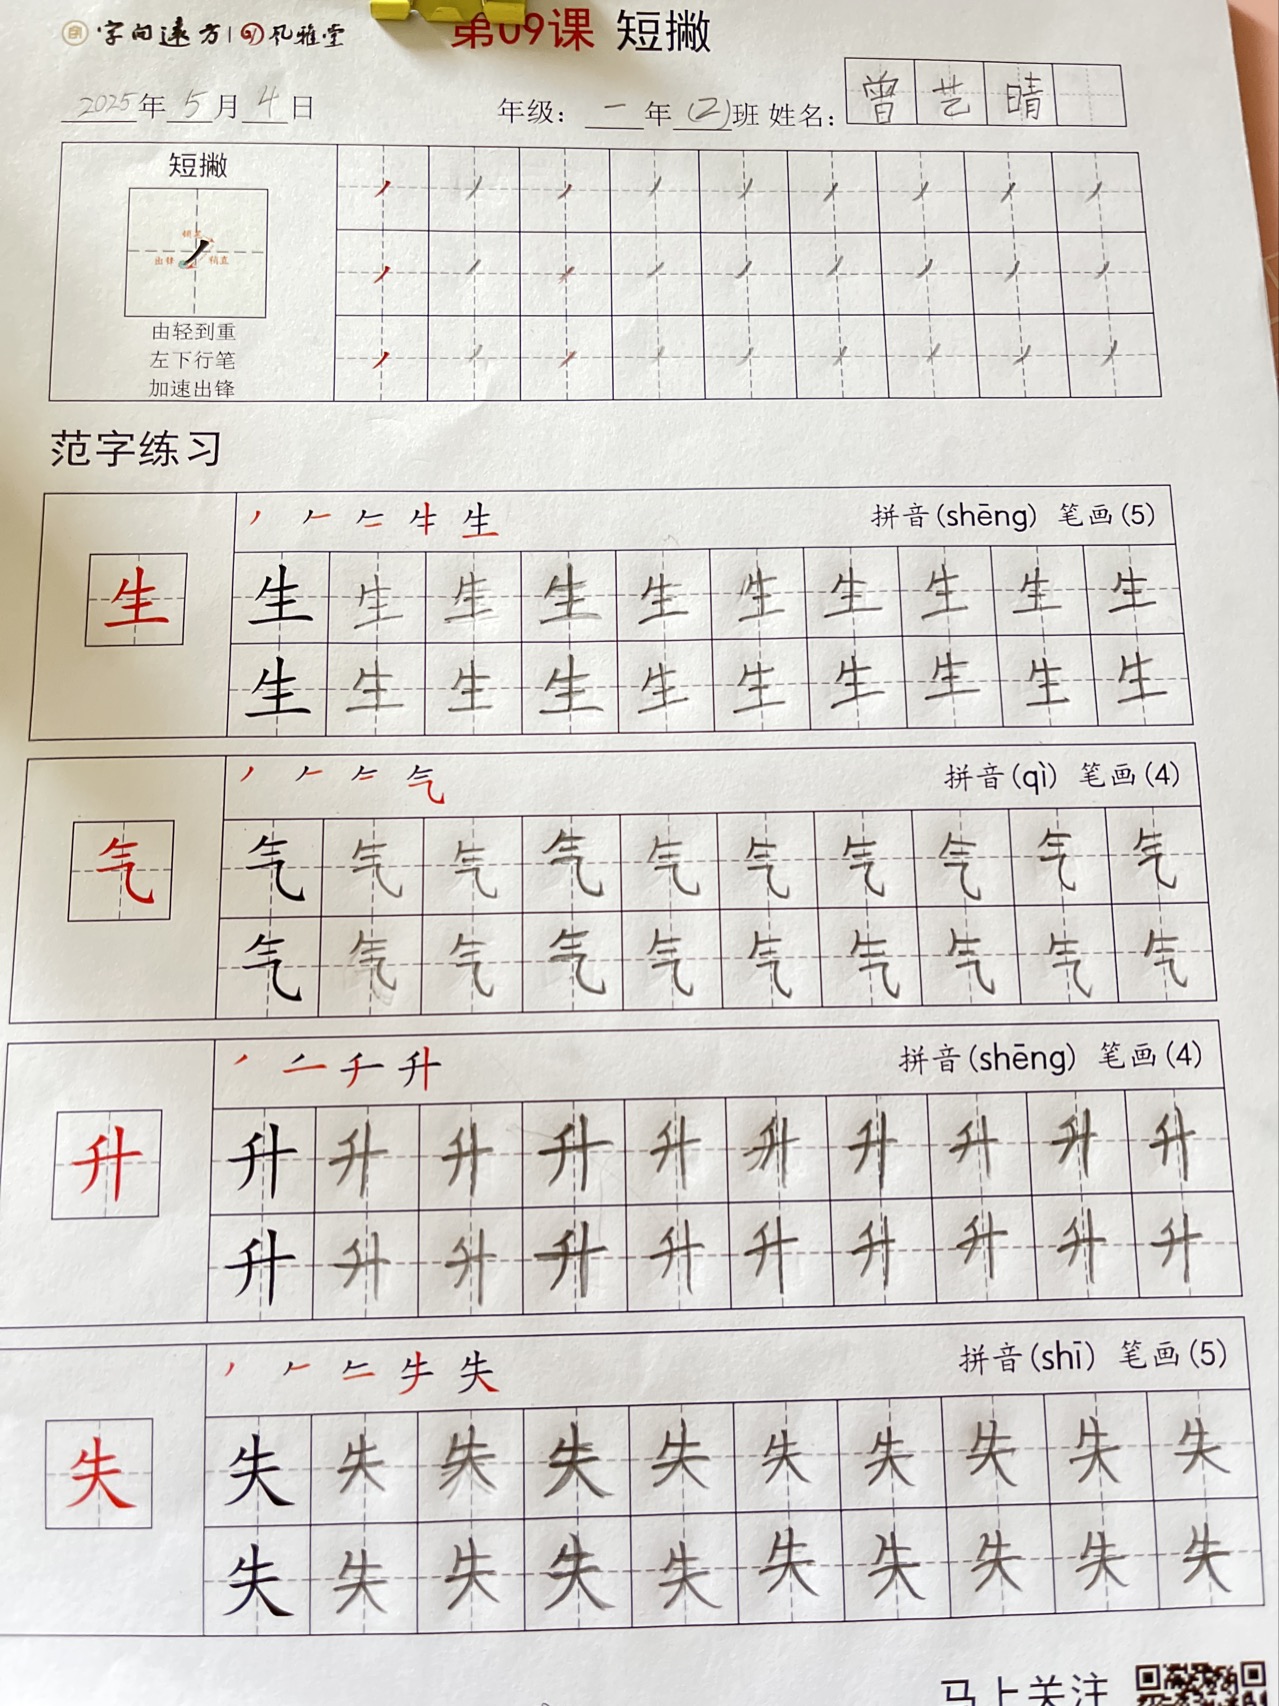 字向远方 | 风雅堂
第09课 短撇
2025年5月4日 年级: 一年(2)班 姓名: 曾艺晴
短撇
由轻到重
左下行笔
加速出锋
范字练习
拼音(shēng) 笔画(5)
生 生 生 生 生 生 生 生 生 生 生
生 生 生 生 生 生 生 生 生 生
拼音(qì) 笔画(4)
气 气 气 气 气 气 气 气 气 气 气
气 气 气 气 气 气 气 气 气 气
拼音(shēng) 笔画(4)
升 升 升 升 升 升 升 升 升 升 升
升 升 升 升 升 升 升 升 升 升
拼音(shī) 笔画(5)
失 失 失 失 失 失 失 失 失 失 失
失 失 失 失 失 失 失 失 失 失
马上关注